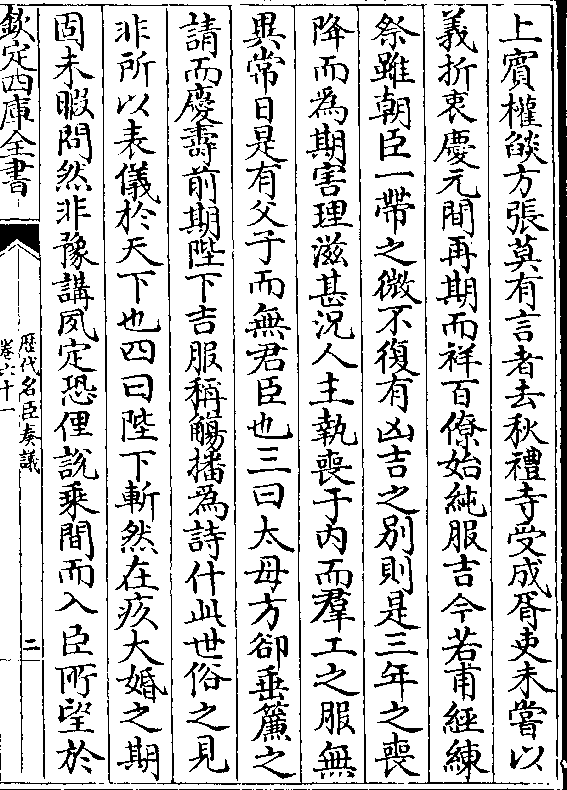 上賔權燄方張莫有言者去秋禮寺受成胥吏未嘗以
義折衷慶元間再期而祥百僚始純服吉今若甫經練
祭雖朝臣一帶之微不復有凶吉之别則是三年之喪
降而為期害理滋甚況人主執喪于内而羣工之服無
異常日是有父子而無君臣也三曰太母方卻垂簾之
請而慶壽前期陛下吉服稱觴播為詩什此世俗之見
非所以表儀於天下也四曰陛下斬然在疚大婚之期
固未暇問然非豫講夙定恐俚説乘間而入臣所望於
欽定四庫全書
歴代名臣奏議
卷六十一
二